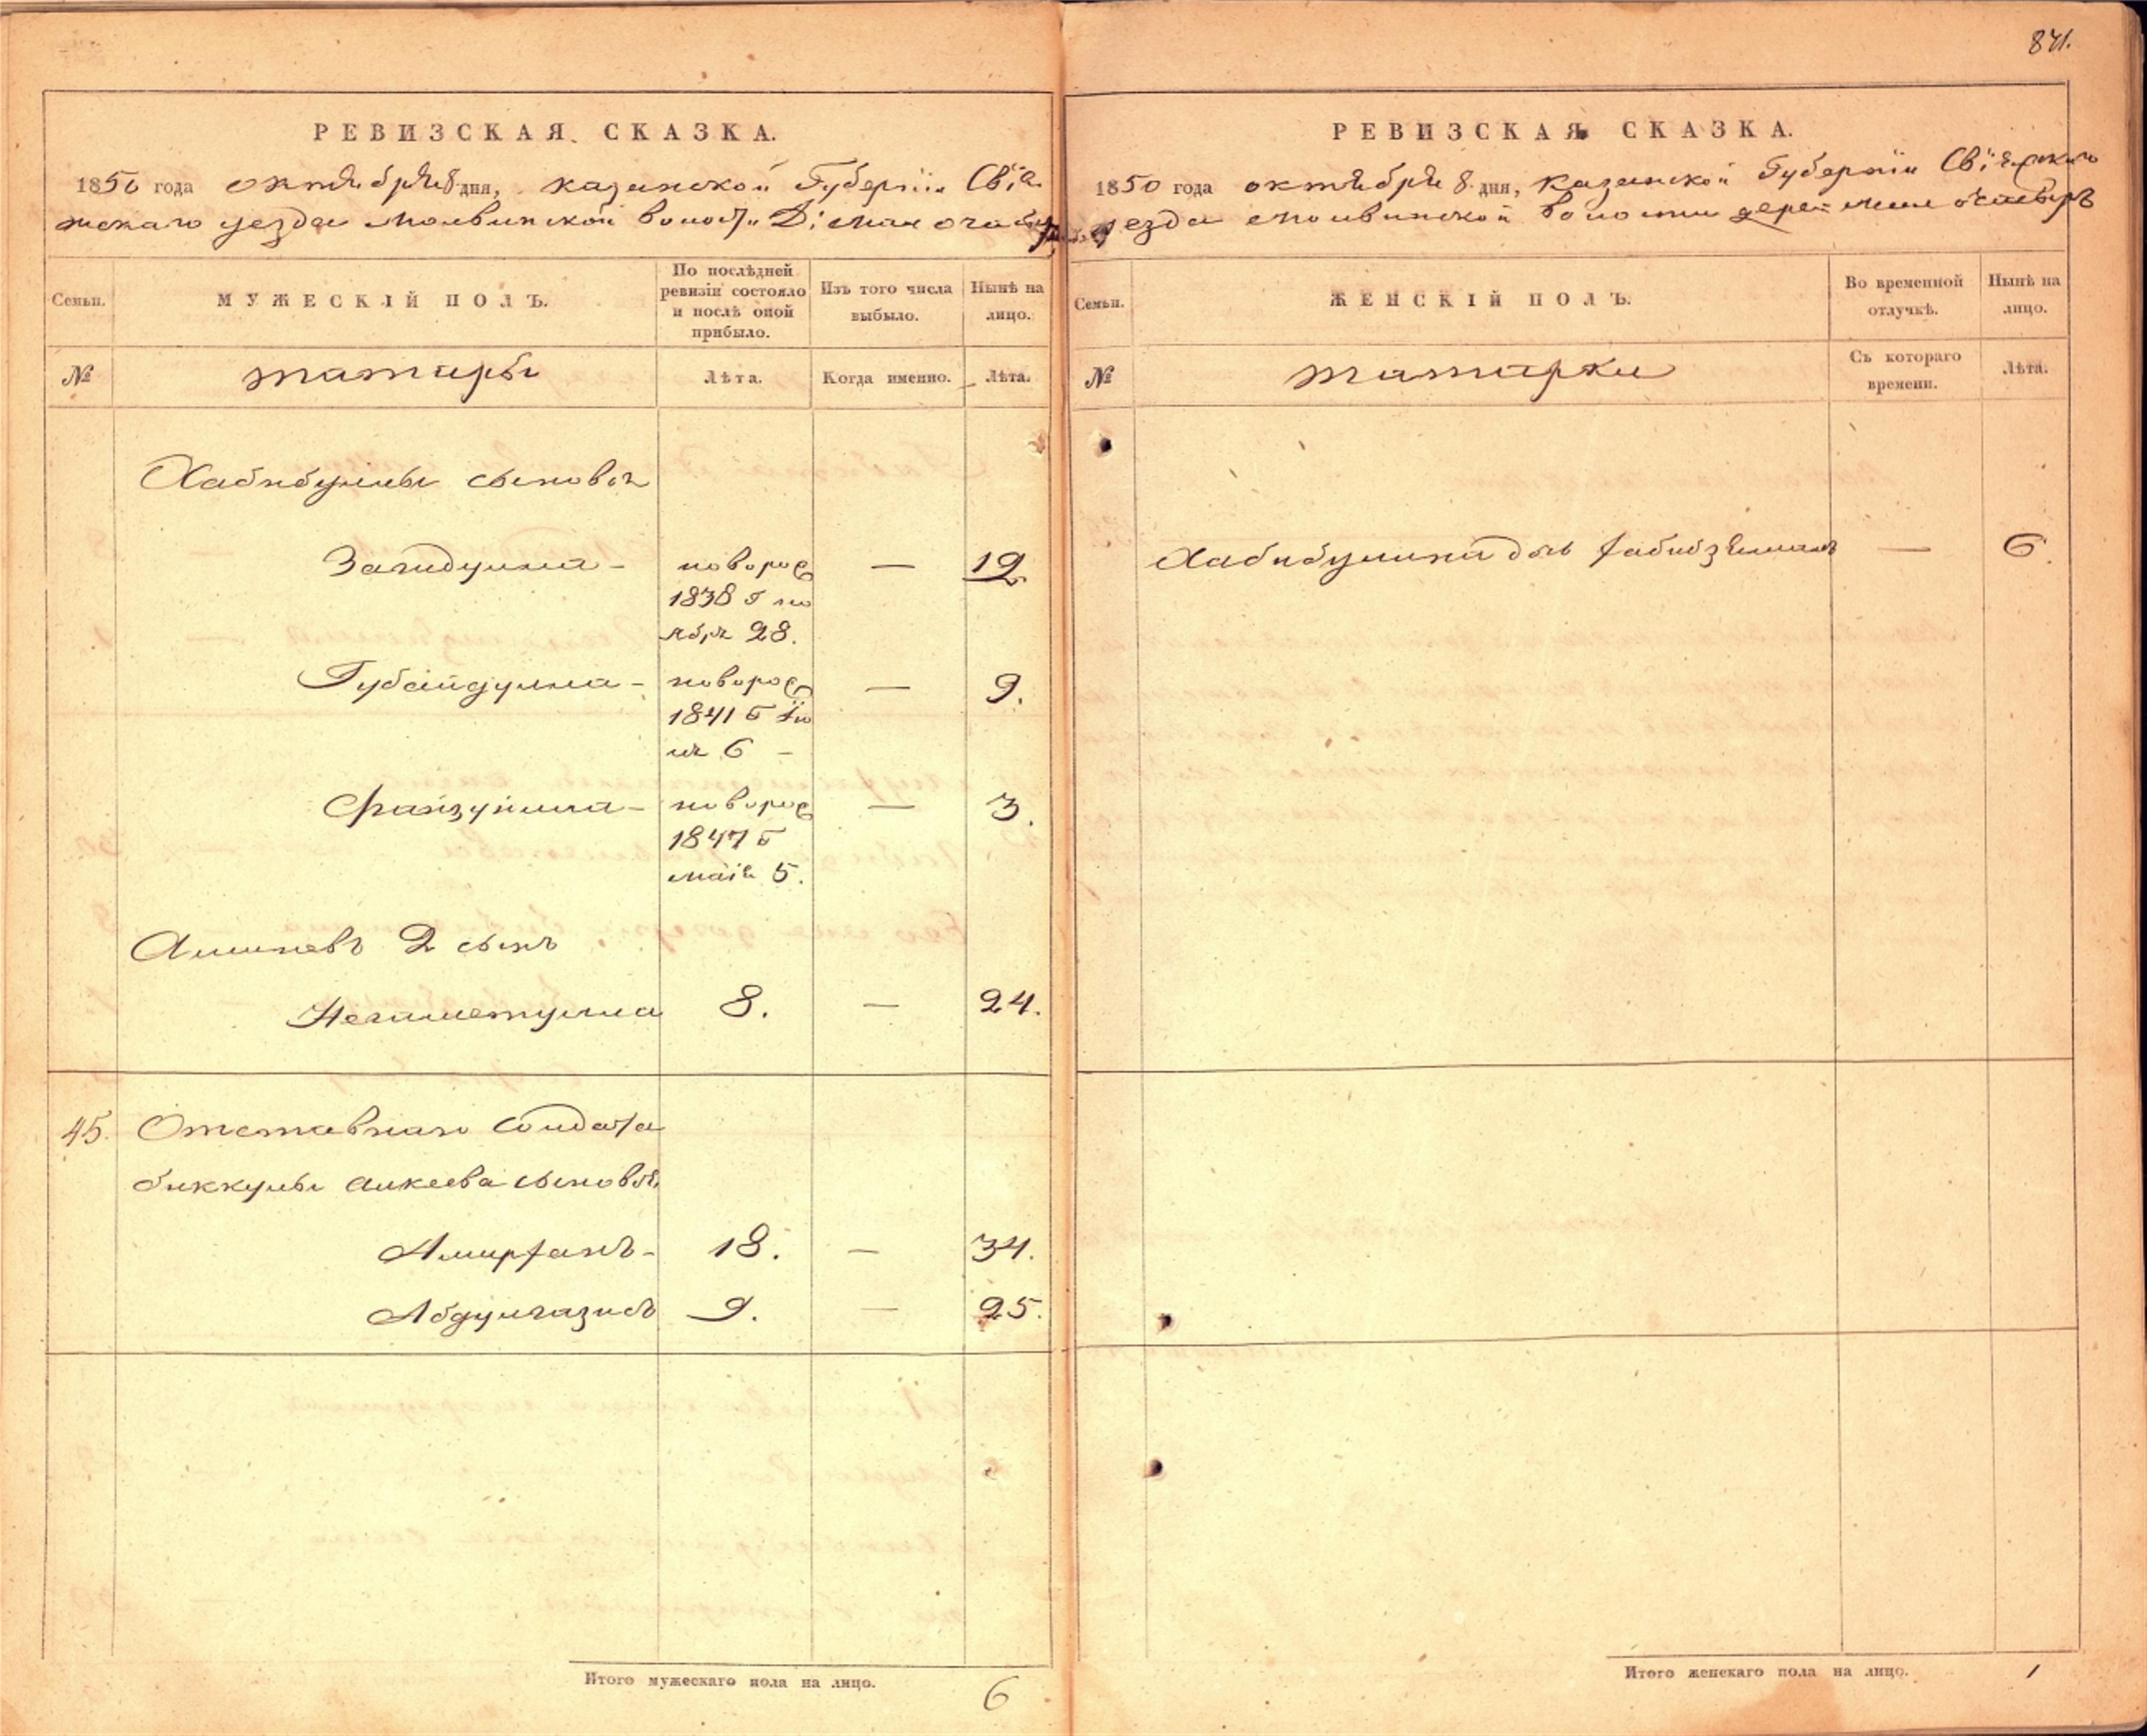 841.
РЕВИЗСКАЯ СКАЗКА.
1850 года октября 8 дня, казанской Губернии Свiя
жскаго уезда молвинской волости Д:
Семьи.
МУЖЕСКIЙ ПОЛЪ.
По послѣдней ревизiи состояло и послѣ оной прибыло.
Изъ того числа выбыло.
Нынѣ на лицо.
№
татары
Лѣта.
Когда именно.
Лѣта.
Хабибуллы сыновья
Загидулла - новорож — 12
1838 г но
ября 28.
Губайдулла - новорож — 9.
1841 г iю
ля 6 -
Файзулла - новорож — 3.
1847 г
маiя 5.
2 сынъ
Негаметулла 8. — 24.
45. Отставнаго Солдата
биккулы алкеева сыновья,
Амирханъ - 18. — 34.
Абдулгазисъ 9. — 25.
Итого мужескаго пола на лицо. 6
РЕВИЗСКАЯ СКАЗКА.
1850 года октября 8 дня, Казанской Губернiи Свiяжскаго
уезда молвинской волости
Семьи.
ЖЕНСКIЙ ПОЛЪ.
Во временной отлучкѣ.
Нынѣ на лицо.
№
татарки
Съ котораго времени.
Лѣта.
Хабибуллина дочь — 6.
Итого женскаго пола на лицо. 1